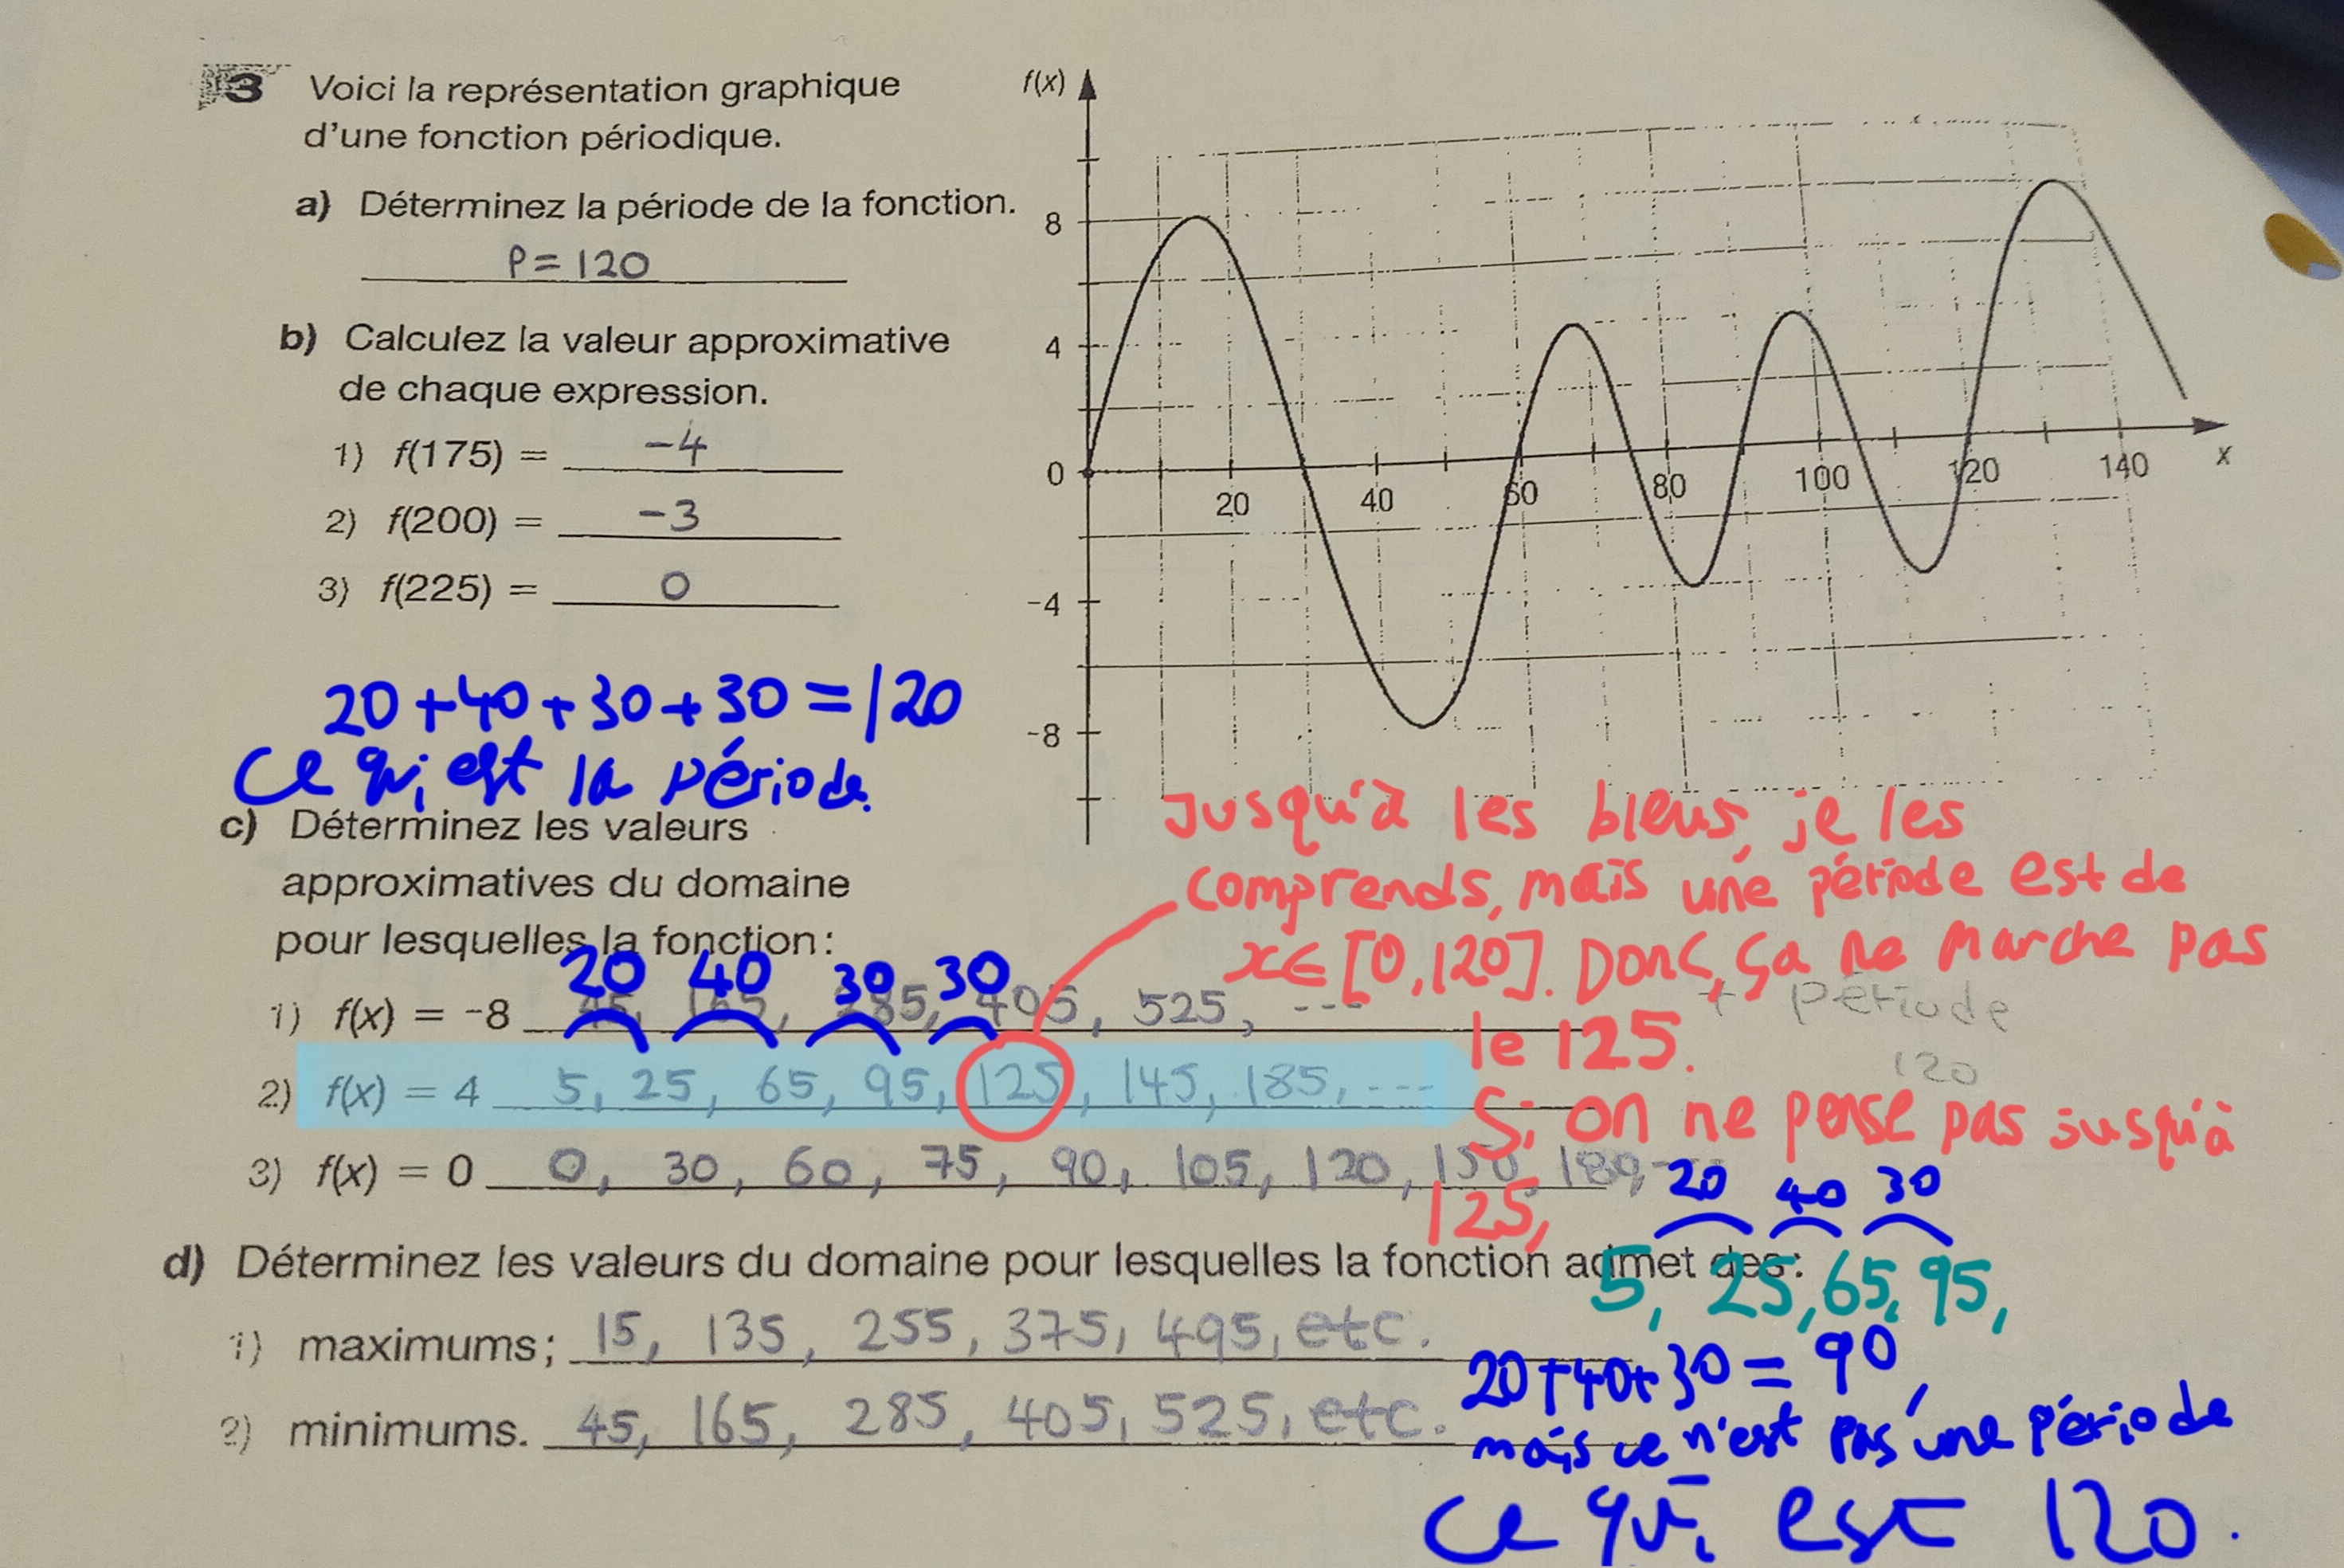 3 Voici la représentation graphique
d'une fonction périodique.
a) Déterminez la période de la fonction.
P = 120
b) Calculez la valeur approximative
de chaque expression.
1) f(175) = -4
2) f(200) = -3
3) f(225) = 0
f(x)
8
4
0
-4
-8
20 40 60 80 100 120 140 x
20+40+30+30=120
ce qui est la période.
c) Déterminez les valeurs
approximatives du domaine
pour lesquelles la fonction :
20 40 30 30
1) f(x) = -8 45, 165, 285, 405, 525, ---
2) f(x) = 4 5, 25, 65, 95, 125, 145, 185, ---
3) f(x) = 0 0, 30, 60, 75, 90, 105, 120, 150, 180, ---
+ période
120
Jusqu'à les bleus, je les
comprends, mais une période est de
x∈[0,120]. Donc, ça ne marche pas
le 125.
Si on ne pense pas jusqu'à
125,
20 40 30
5, 25, 65, 95,
20+40+30=90,
mais ce n'est pas une période
ce qui est 120.
d) Déterminez les valeurs du domaine pour lesquelles la fonction admet des :
1) maximums ; 15, 135, 255, 375, 495, etc.
2) minimums. 45, 165, 285, 405, 525, etc.